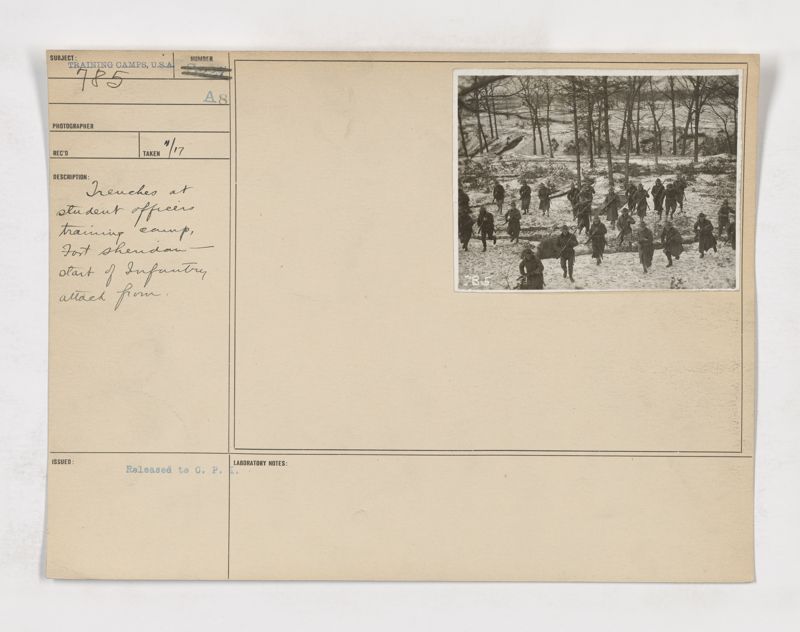 SUBJECT:
TRAINING CAMPS, U.S.A.
NUMBER
785
A8
PHOTOGRAPHER
REC'D
TAKEN 11/17
DESCRIPTION:
Trenches at
student officers
training camp,
Fort Sheridan—
start of Infantry
attack from.
ISSUED:
Released to C. P. I.
LABORATORY NOTES:
785